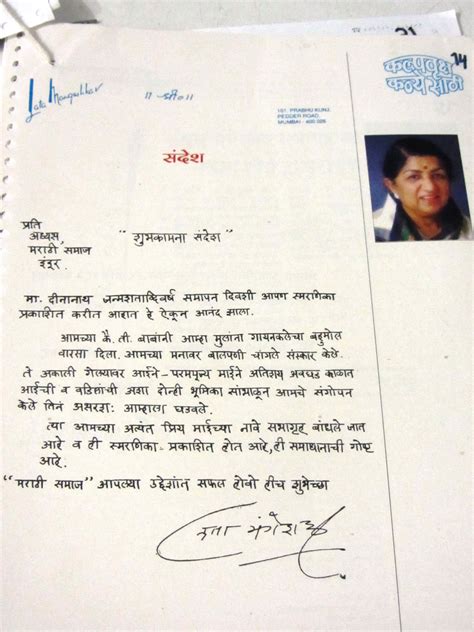 14
कल्पवृक्ष
कन्येसाठी
Lata Mangeshkar
॥ श्री ॥
101, PRABHU KUNJ,
PEDDER ROAD,
MUMBAI - 400 026
संदेश
प्रति
अध्यक्ष,
मराठी समाज
इंदूर.
" शुभकामना संदेश "
मा. दीनानाथ जन्मशताब्दिवर्ष समापन दिवशी आपण स्मरणिका
प्रकाशित करीत आहात हे ऐकून आनंद झाला.
आमच्या कै. ती. बाबांनी आम्हा मुलांना गायनकलेचा बहुमोल
वारसा दिला. आमच्या मनावर बालपणी चांगले संस्कार केले.
ते अकाली गेल्यावर आईने - परमपूज्य माईने अतिशय अवघड काळात
आईची व वडिलांची अशा दोन्ही भूमिका सांभाळून आमचे संगोपन
केले तिनं अक्षरशः आम्हाला घडवले.
त्या आमच्या अत्यंत प्रिय माईच्या नावे सभागृह बांधले जात
आहे व ही स्मरणिका प्रकाशित होत आहे, ही समाधानाची गोष्ट
आहे.
"मराठी समाज" आपल्या उद्देशांत सफल होवो हीच शुभेच्छा
लता मंगेशकर